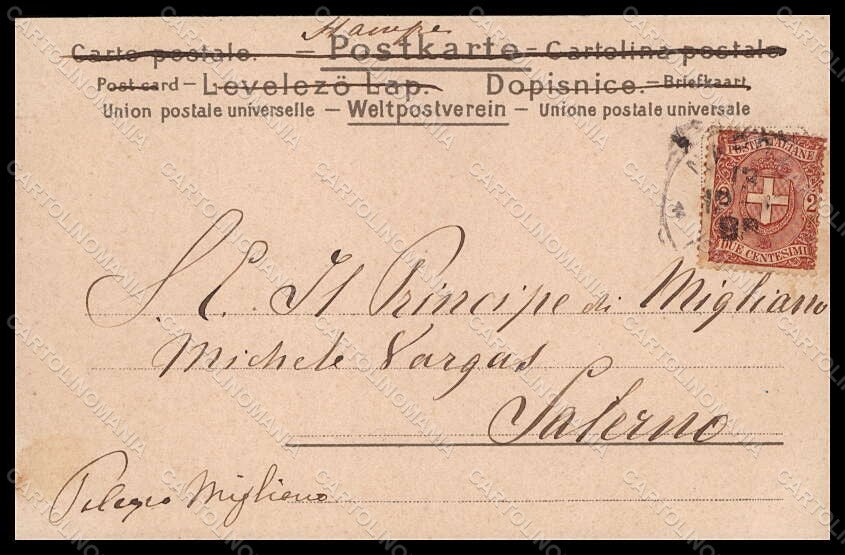 Stampe
Carte postale. — Postkarte — Cartolina postale
Post card — Levelező Lap. Dopisnice. — Briefkaart
Union postale universelle — Weltpostverein — Unione postale universale
POSTE ITALIANE
2 2
DUE CENTESIMI
S. E. Il Principe di Migliano
Michele Vargas
Salerno
Migliano
CARTOLINOMANIA